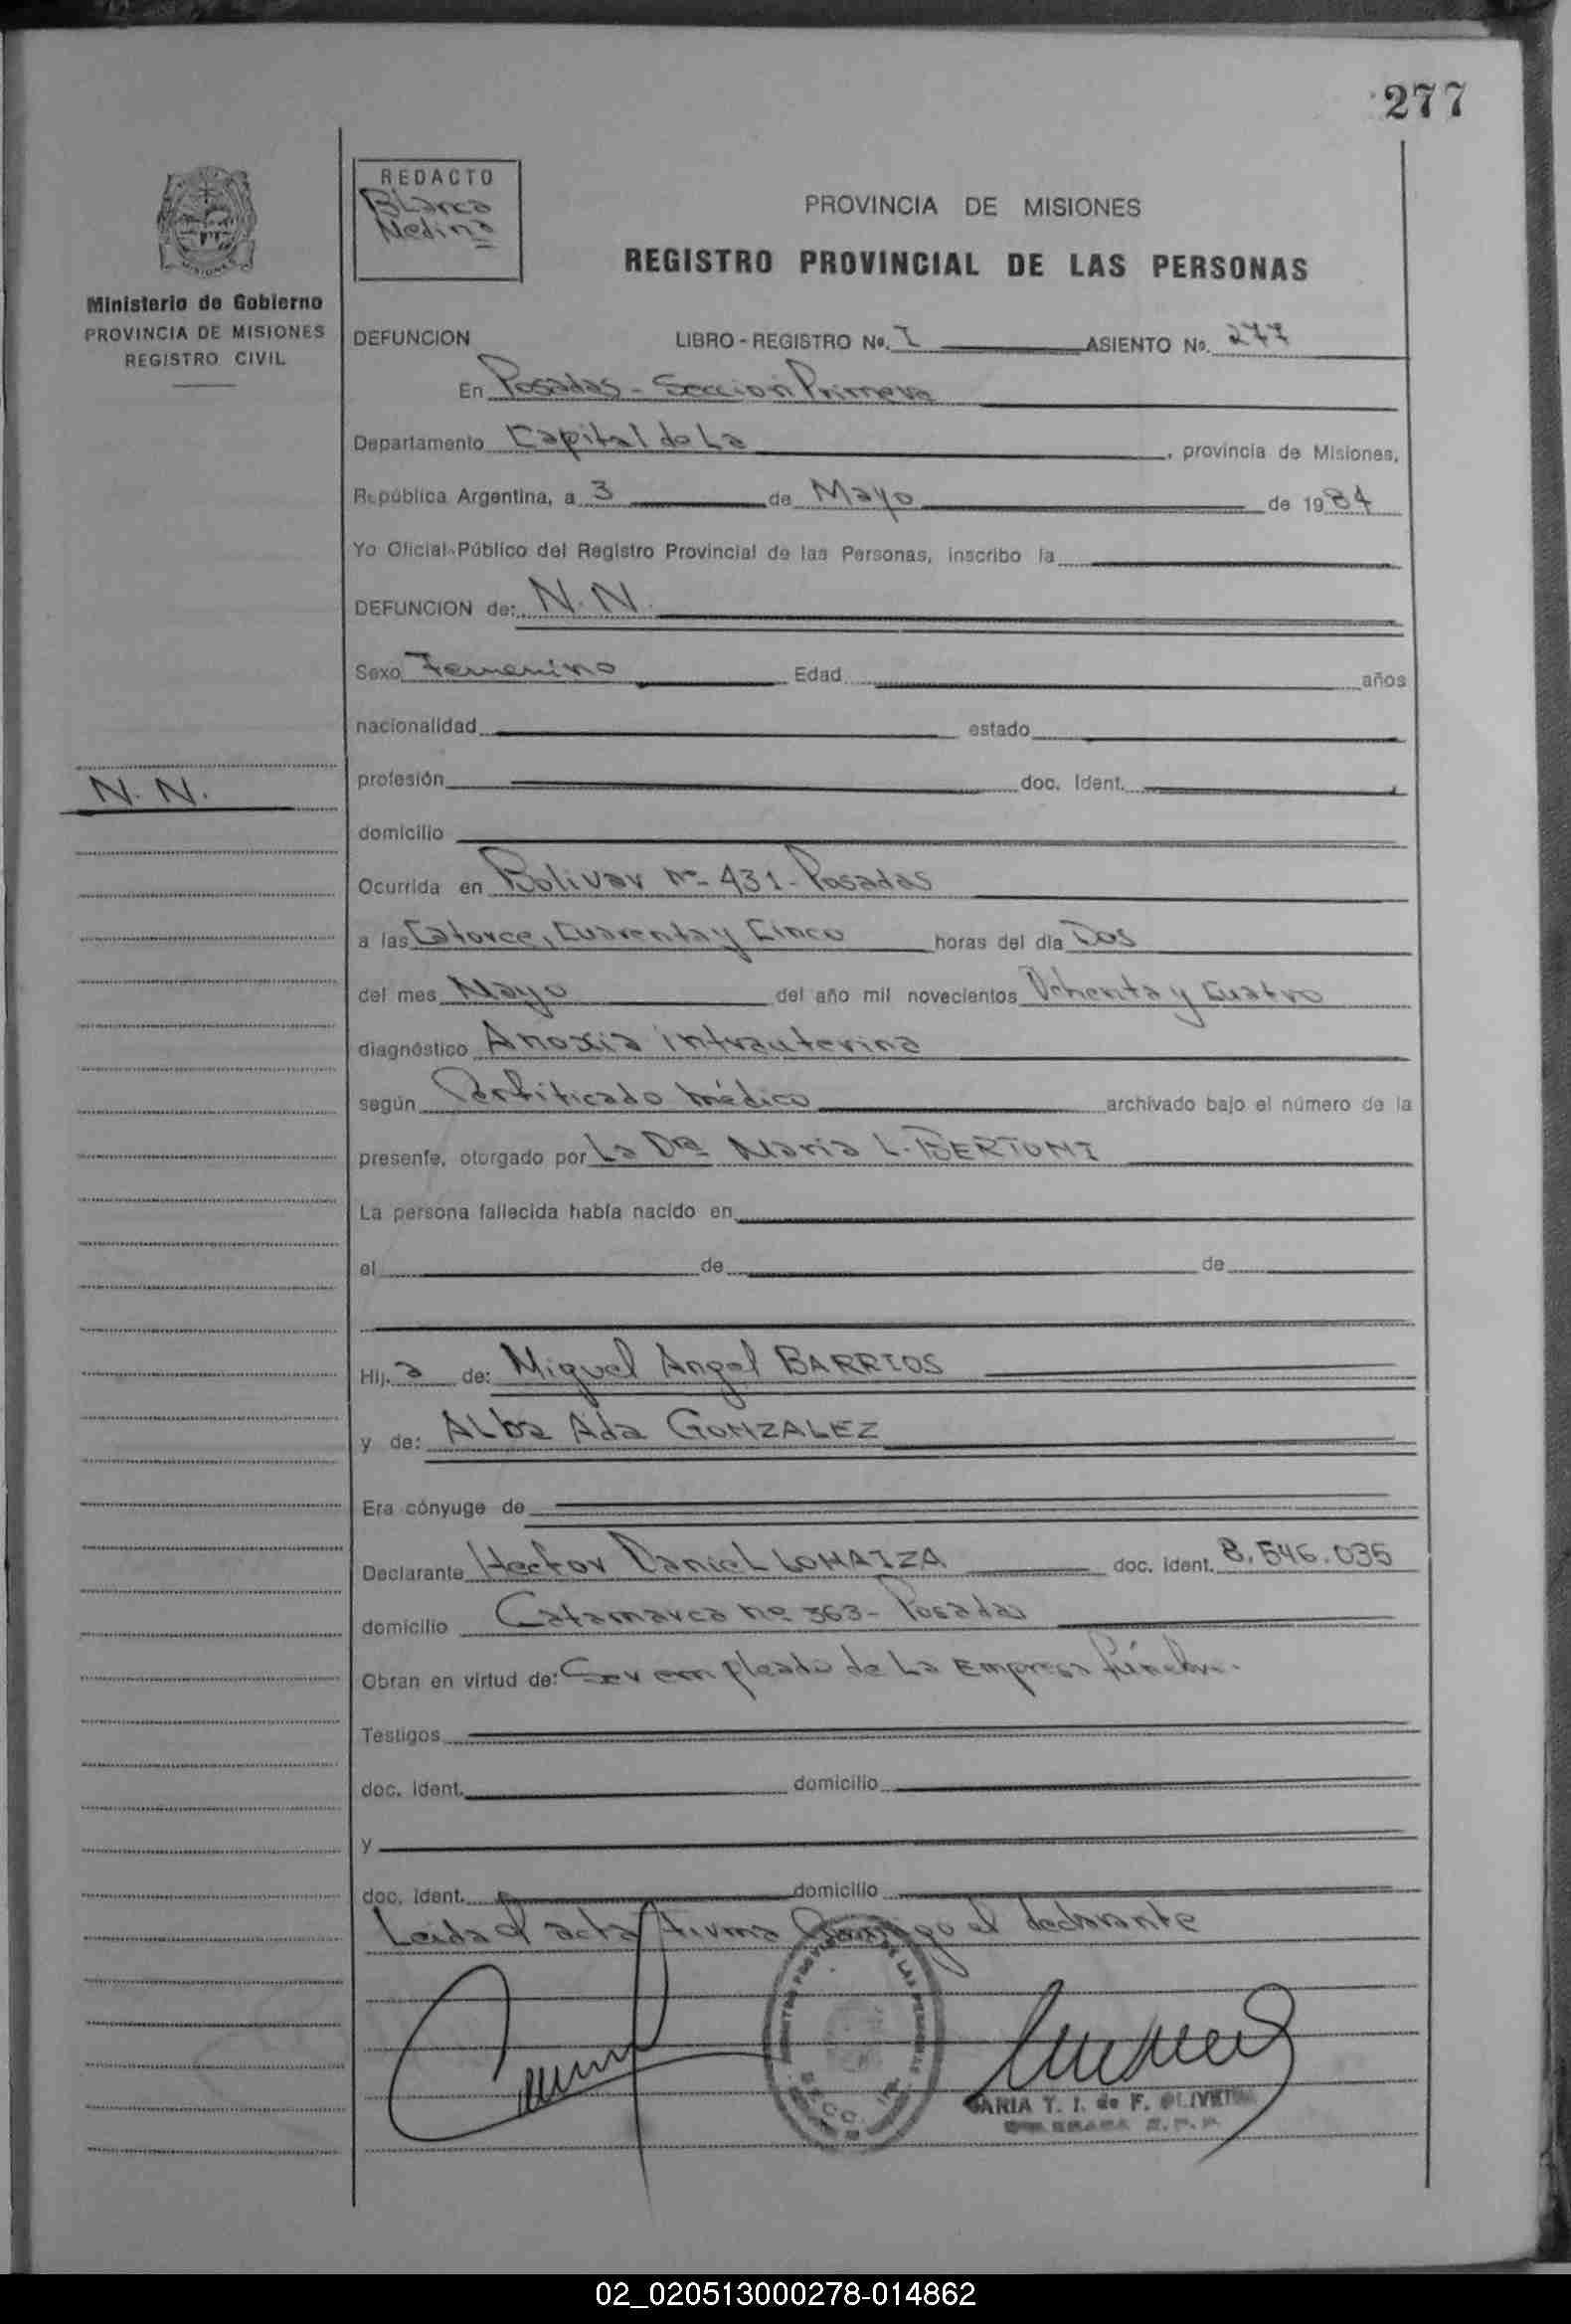 277
REDACTO
Blanca
Medina
PROVINCIA DE MISIONES
REGISTRO PROVINCIAL DE LAS PERSONAS
MISIONES
Ministerio de Gobierno
PROVINCIA DE MISIONES
REGISTRO CIVIL
DEFUNCION LIBRO - REGISTRO No. I ASIENTO No. 277
En Posadas - Sección Primera
Departamento Capital de La , provincia de Misiones,
República Argentina, a 3 de Mayo de 1984
Yo Oficial Público del Registro Provincial de las Personas, inscribo la
DEFUNCION de: N.N.
Sexo Femenino Edad años
nacionalidad estado
N. N.
profesión doc. Ident.
domicilio
Ocurrida en Bolivar Nº 431 - Posadas
a las Catorce, Cuarenta y Cinco horas del día Dos
del mes Mayo del año mil novecientos Ochenta y Cuatro
diagnóstico Anoxia intrauterina
según Certificado médico archivado bajo el número de la
presente, otorgado por La Dra Maria L. BERTONI
La persona fallecida había nacido en
el de de
Hij a de: Miguel Angel BARRIOS
y de: Alba Ada GONZALEZ
Era cónyuge de
Declarante Hector Daniel LOMAIZA doc. ident. 8.546.035
domicilio Catamarca nº 363 - Posadas
Obran en virtud de: Ser empleado de La Empresa fúnebre.
Testigos
doc. ident. domicilio
y
doc. ident. domicilio
Leida el acta firma Conmigo el declarante
SECC. 1ra.
MARIA T. I. de F. OLIVEIRA
02_020513000278-014862